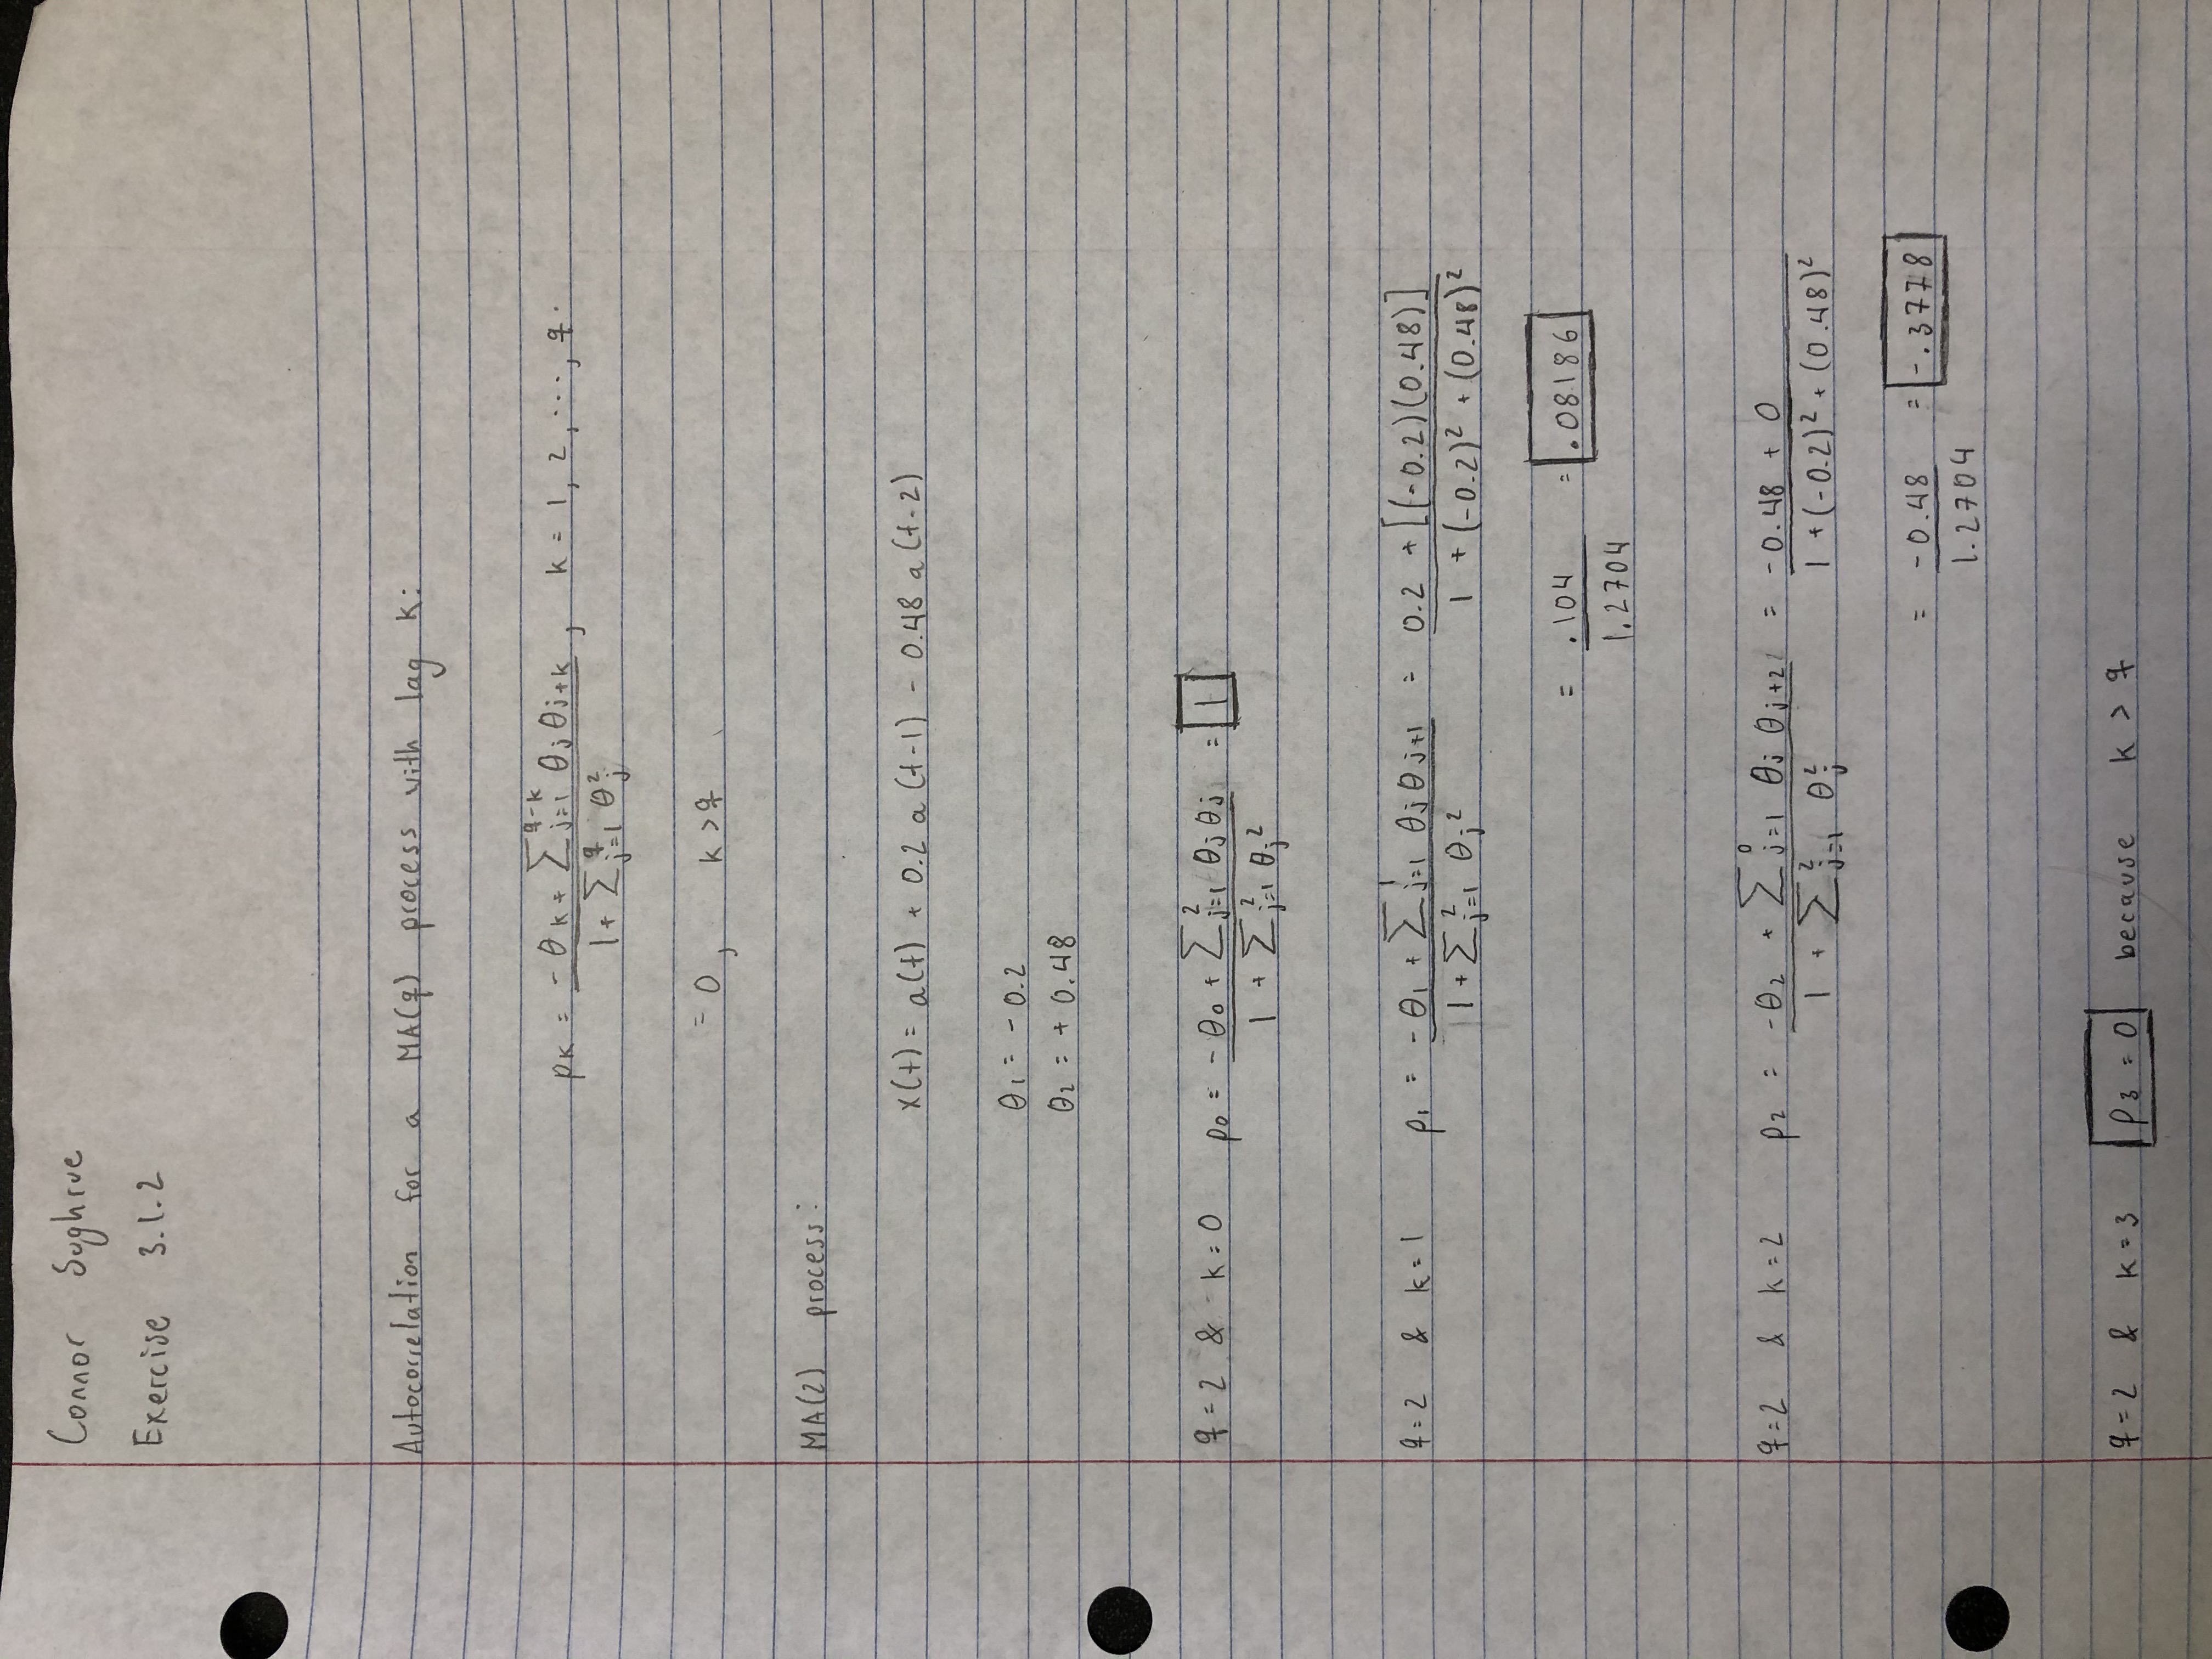 Connor Sughrue
Exercise 3.1.2
Autocorrelation for a MA(q) process with lag k:
ρk = (-θk + Σ_{j=1}^{q-k} θj θj+k) / (1 + Σ_{j=1}^{q} θj²), k = 1, 2, ..., q.
= 0, k > q
MA(2) process:
x(t) = a(t) + 0.2 a(t-1) - 0.48 a(t-2)
θ1 = -0.2
θ2 = +0.48
q = 2 & k = 0 ρ0 = (-θ0 + Σ_{j=1}^{2} θj θj) / (1 + Σ_{j=1}^{2} θj²) = 1
q = 2 & k = 1 ρ1 = (-θ1 + Σ_{j=1}^{1} θj θj+1) / (1 + Σ_{j=1}^{2} θj²) = (0.2 + [(-0.2)(0.48)]) / (1 + (-0.2)² + (0.48)²)
= .104 / 1.2704 = .08186
q = 2 & k = 2 ρ2 = (-θ2 + Σ_{j=1}^{0} θj θj+2) / (1 + Σ_{j=1}^{2} θj²) = (-0.48 + 0) / (1 + (-0.2)² + (0.48)²)
= -0.48 / 1.2704 = -.3778
q = 2 & k = 3 ρ3 = 0 because k > q